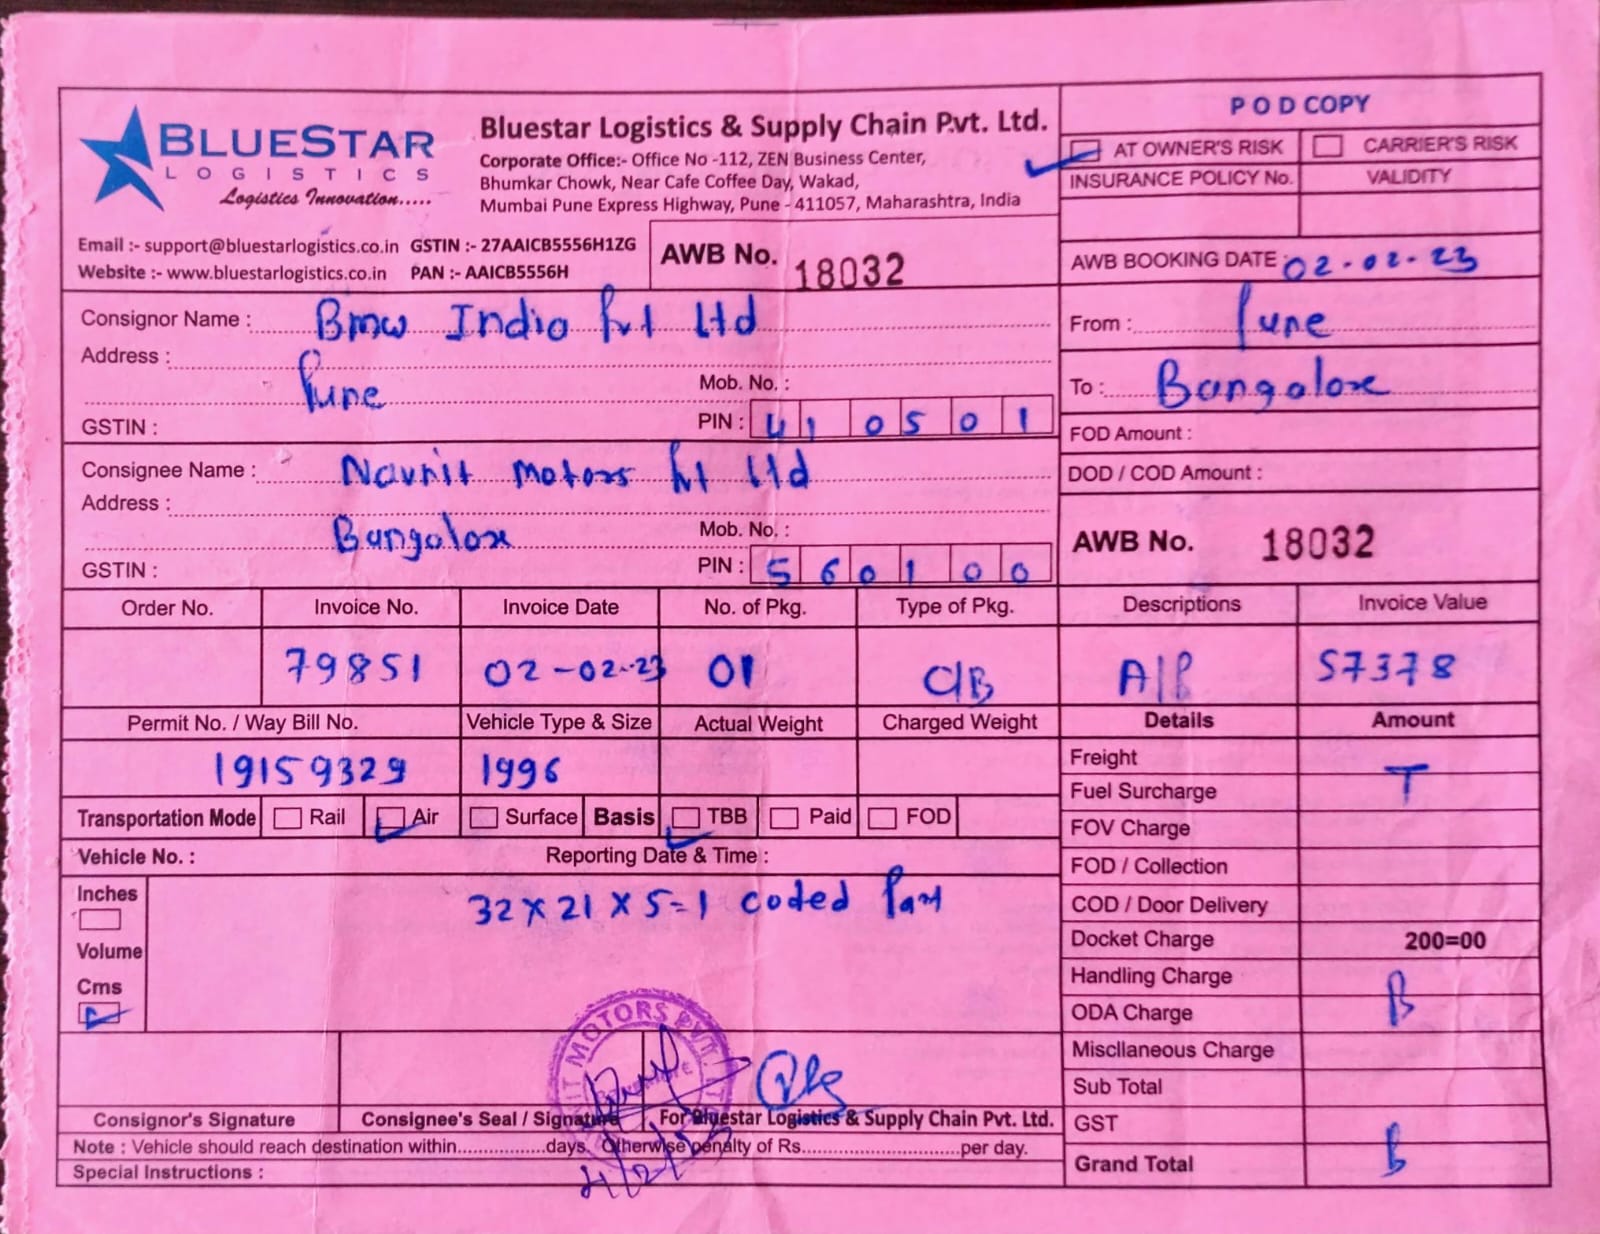 POD COPY
BLUESTAR
LOGISTICS
Logistics Innovation.....
Bluestar Logistics & Supply Chain Pvt. Ltd.
Corporate Office:- Office No -112, ZEN Business Center,
Bhumkar Chowk, Near Cafe Coffee Day, Wakad,
Mumbai Pune Express Highway, Pune - 411057, Maharashtra, India
AT OWNER'S RISK CARRIER'S RISK
INSURANCE POLICY No. VALIDITY
Email :- support@bluestarlogistics.co.in GSTIN :- 27AAICB5556H1ZG
Website :- www.bluestarlogistics.co.in PAN :- AAICB5556H
AWB No. 18032
AWB BOOKING DATE : 02-02-23
Consignor Name : Bmw India Pvt Ltd
From : Pune
Address :
Pune
Mob. No. :
To : Bangalore
GSTIN : PIN : 410501
FOD Amount :
Consignee Name : Navnit Motors Pvt Ltd
DOD / COD Amount :
Address :
Bangalore
Mob. No. :
AWB No. 18032
GSTIN : PIN : 560100
Order No. Invoice No. Invoice Date No. of Pkg. Type of Pkg. Descriptions Invoice Value
79851 02-02-23 01 C/B A/P 57378
Permit No. / Way Bill No. Vehicle Type & Size Actual Weight Charged Weight Details Amount
19159329 1996
Freight
T
Fuel Surcharge
Transportation Mode Rail Air Surface Basis TBB Paid FOD
FOV Charge
Vehicle No. : Reporting Date & Time :
FOD / Collection
Inches
32x21x5=1 coded Part
COD / Door Delivery
Volume
Docket Charge 200=00
Cms
Handling Charge
B
ODA Charge
NIT MOTORS PVT. LTD
Miscllaneous Charge
Sub Total
Consignor's Signature Consignee's Seal / Signature For Bluestar Logistics & Supply Chain Pvt. Ltd.
GST
Note : Vehicle should reach destination within.................days. Otherwise penalty of Rs..............................per day.
Grand Total B
Special Instructions :